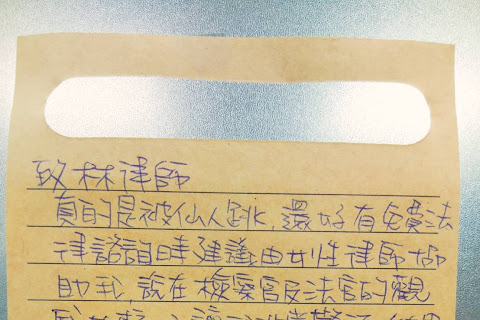 致林律師
真的是被仙人跳,還好有免費法
律諮詢時建議由女性律師協
助我,說在檢察官及法官的觀